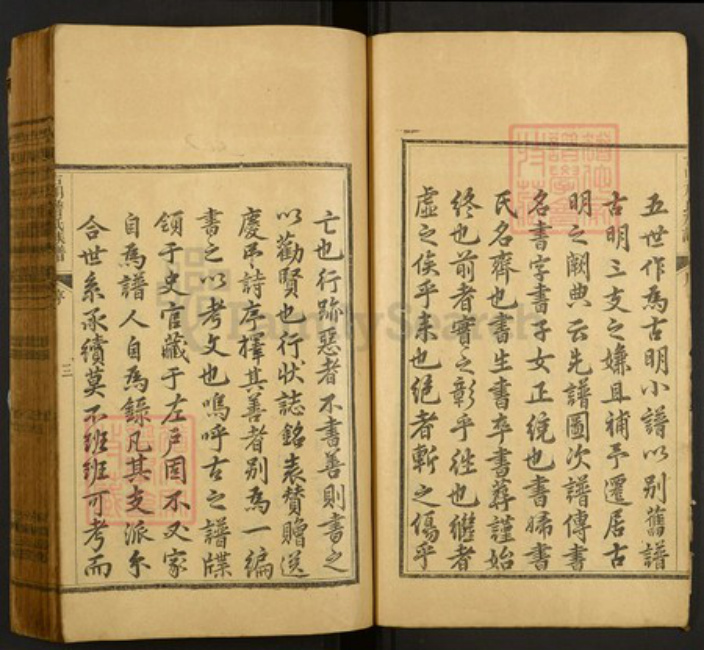 五世作為古明小譜以別舊譜
古明三支之嫌且補予遷居古
明之闕典云先譜圖次譜傳書
名書字書子女正統也書婦書
氏名齊也書生書卒書葬謹始
終也前者實之彰乎往也繼者
虛之俟乎来也絕者斬之傷乎
亡也行跡惡者不書善則書之
以勸賢也行狀誌銘表賛贈送
慶弔詩序擇其善者別為一編
書之以考文也嗚呼古之譜牒
領于史官藏于左戶固不又家
自為譜人自為錄凡其支派分
合世系承續莫不班班可考而
序
三
FamilySearch